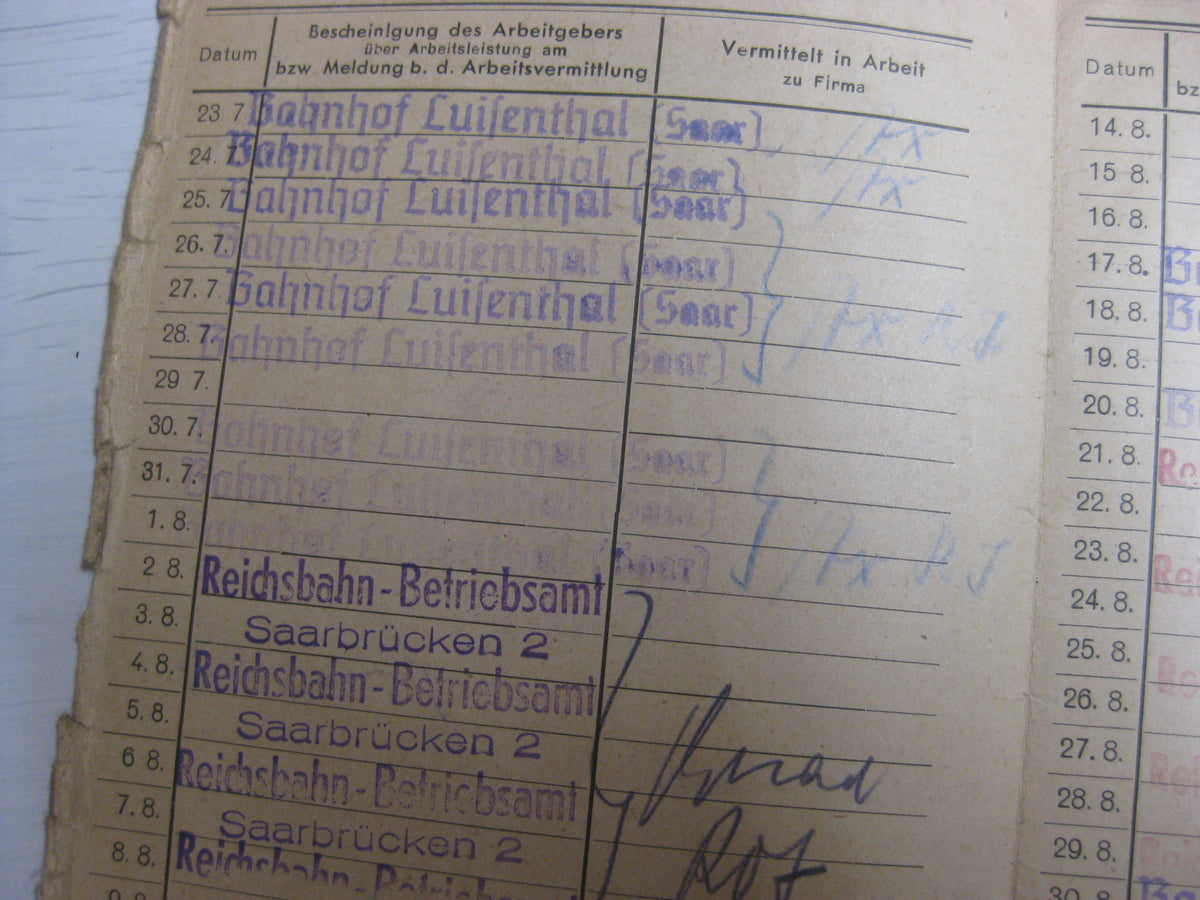 Datum
Bescheinigung des Arbeitgebers
über Arbeitsleistung am
bzw. Meldung b. d. Arbeitsvermittlung
Vermittelt in Arbeit
zu Firma
23 7. Bahnhof Luisenthal (Saar)
24. 7. Bahnhof Luisenthal (Saar)
25. 7. Bahnhof Luisenthal (Saar)
26. 7. Bahnhof Luisenthal (Saar)
27. 7 Bahnhof Luisenthal (Saar)
28. 7. Bahnhof Luisenthal (Saar)
29 7.
30. 7. Bahnhof Luisenthal (Saar)
31. 7. Bahnhof Luisenthal (Saar)
1. 8. Bahnhof Luisenthal (Saar)
2 8. Reichsbahn-Betriebsamt
3. 8. Saarbrücken 2
4. 8. Reichsbahn-Betriebsamt
5. 8. Saarbrücken 2
6 8. Reichsbahn-Betriebsamt
7. 8. Saarbrücken 2
8. 8. Reichsbahn-Betriebsamt
9. 8.
Datum
14. 8.
15 8.
16. 8.
17. 8.
18. 8.
19. 8.
20. 8.
21. 8.
22. 8.
23. 8.
24. 8.
25. 8.
26. 8.
27. 8.
28. 8.
29. 8.
30. 8.